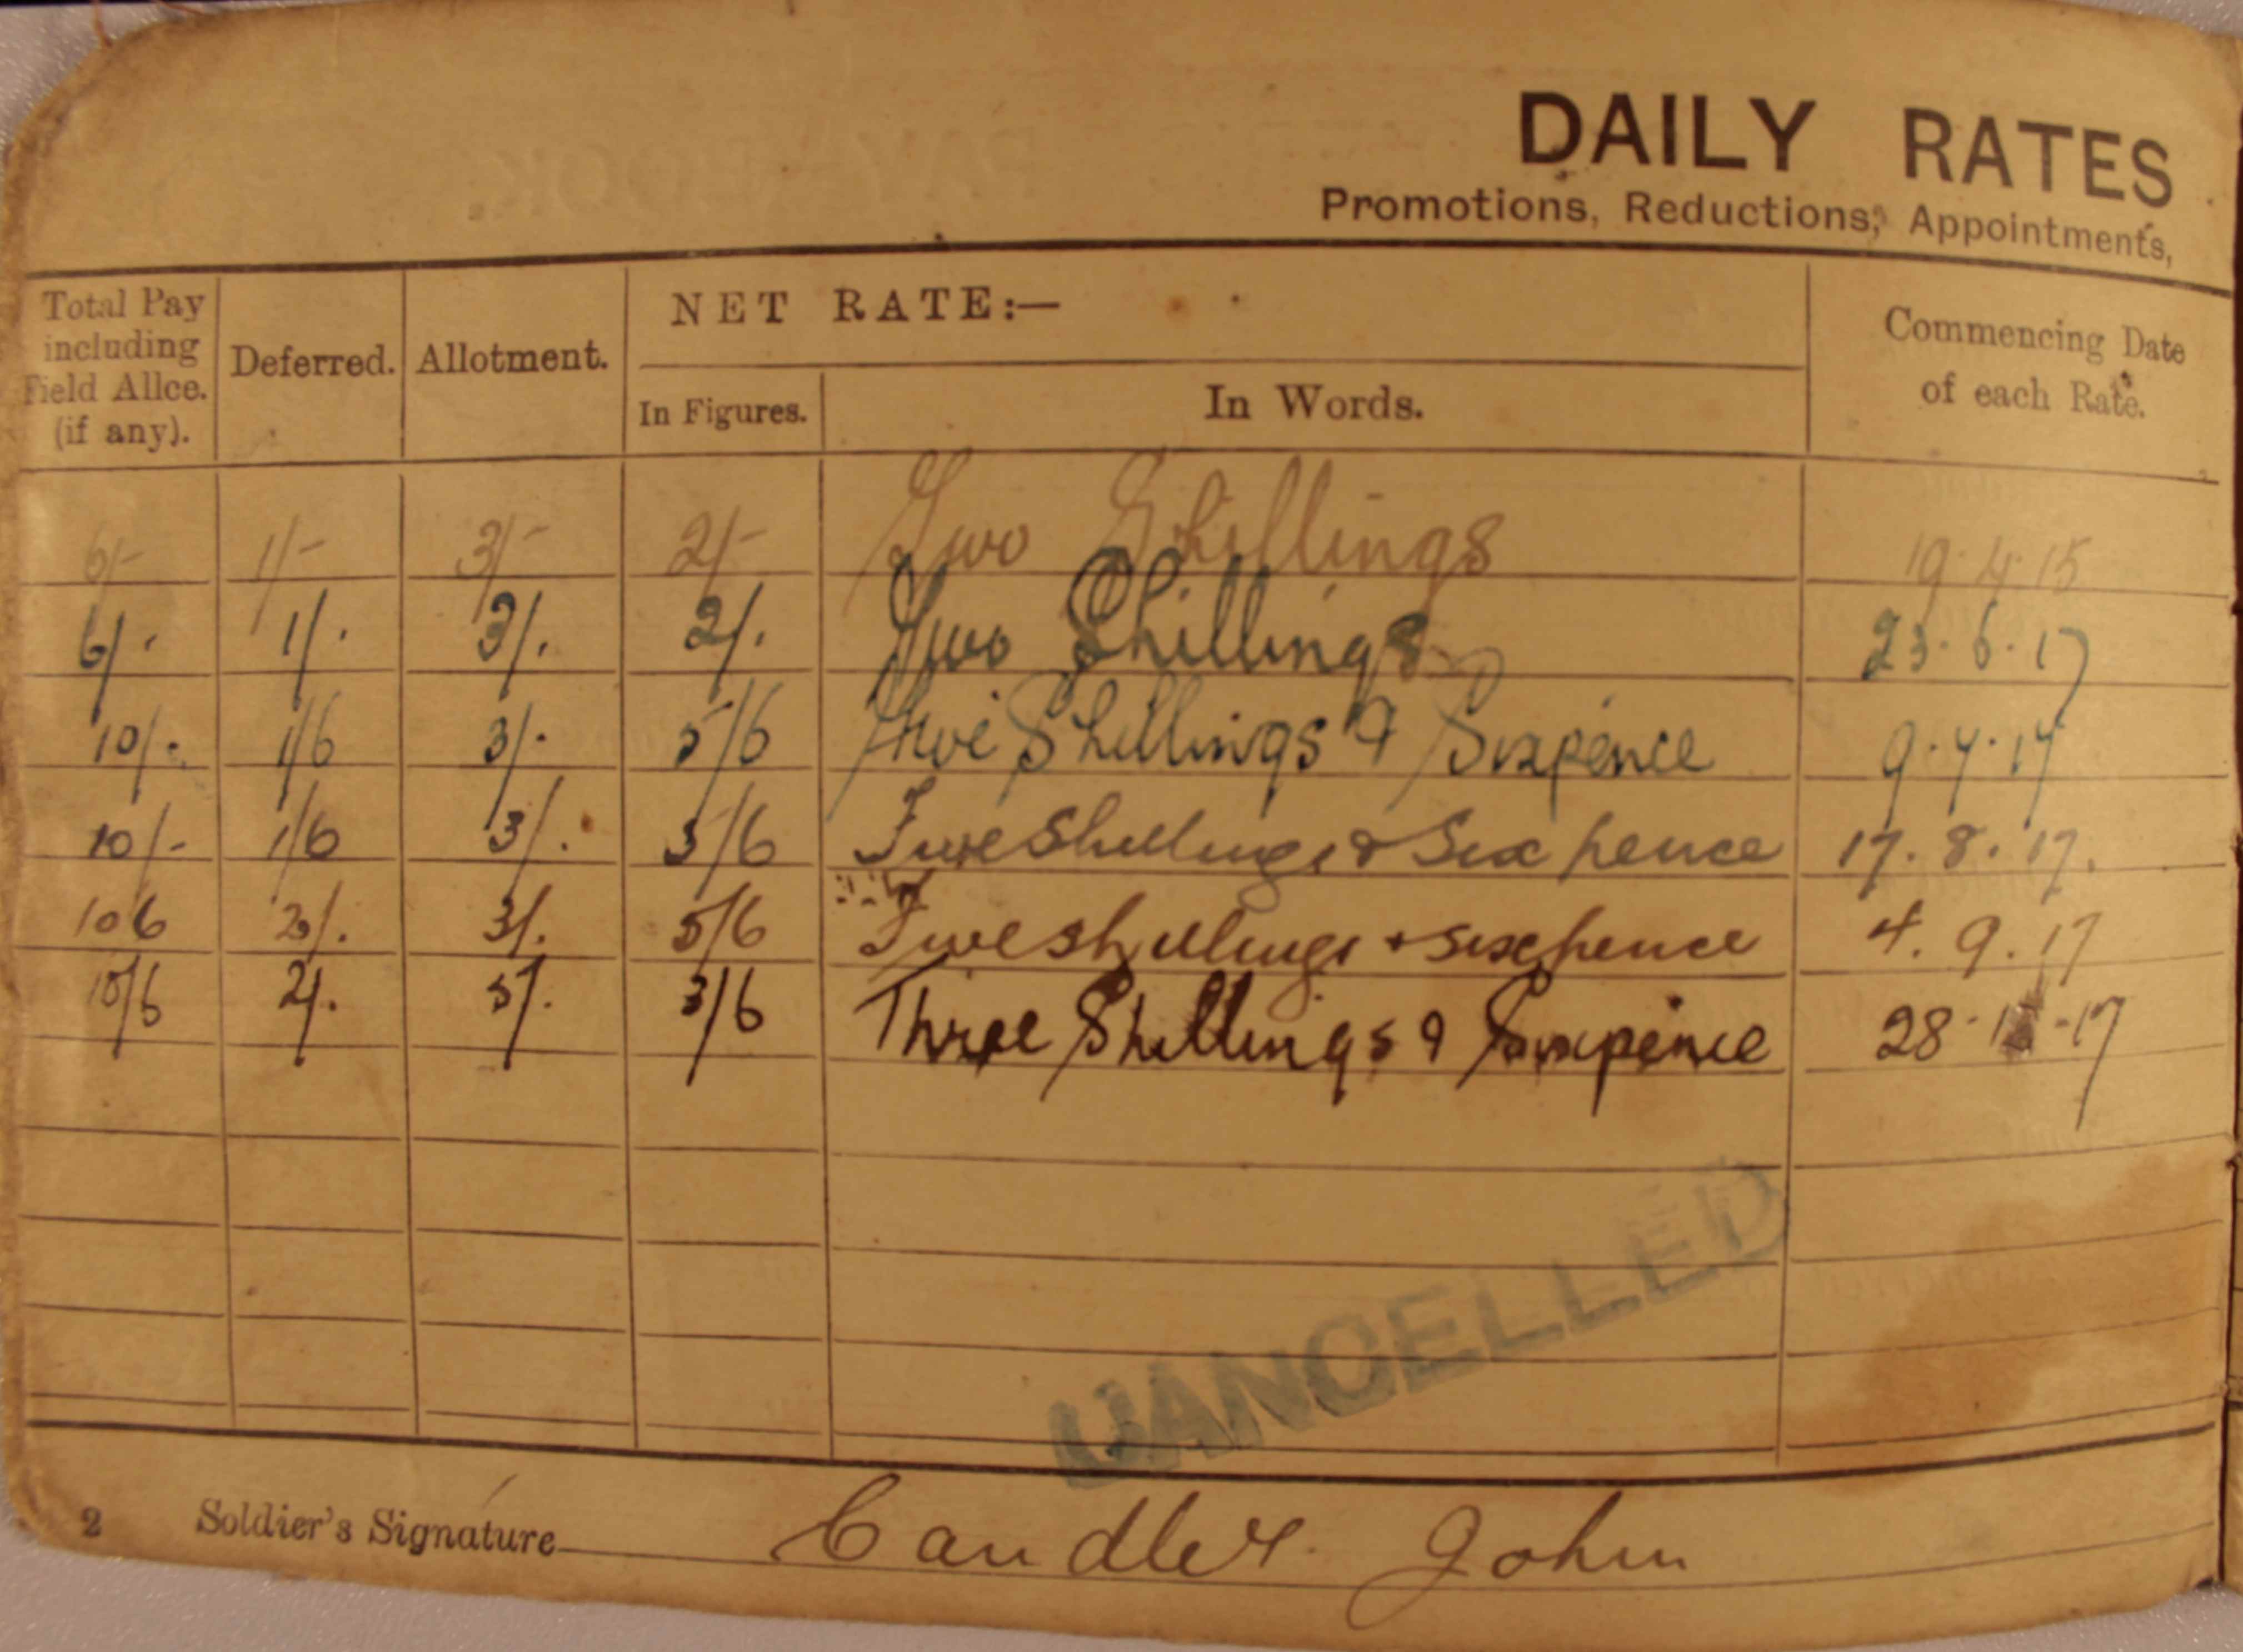 DAILY RATES
Promotions, Reductions, Appointments,
Total Pay including Field Allce. (if any).
Deferred.
Allotment.
NET RATE:—
In Figures.
In Words.
Commencing Date of each Rate.
6/- 1/- 3/- 2/- Two Shillings 19.4.15
6/. 1/. 3/. 2/. Two Shillings 23.6.17
10/. 1/6 3/. 5/6 Five Shillings & Sixpence 9.7.17
10/- 1/6 3/. 5/6 Five Shillings & Six pence 17.8.17.
106 2/. 3/. 5/6 Five shillings & sixpence 4.9.17
10/6 2/. 5/. 3/6 Three Shillings & Sixpence 28 -17
CANCELLED
2 Soldier's Signature Candler. John